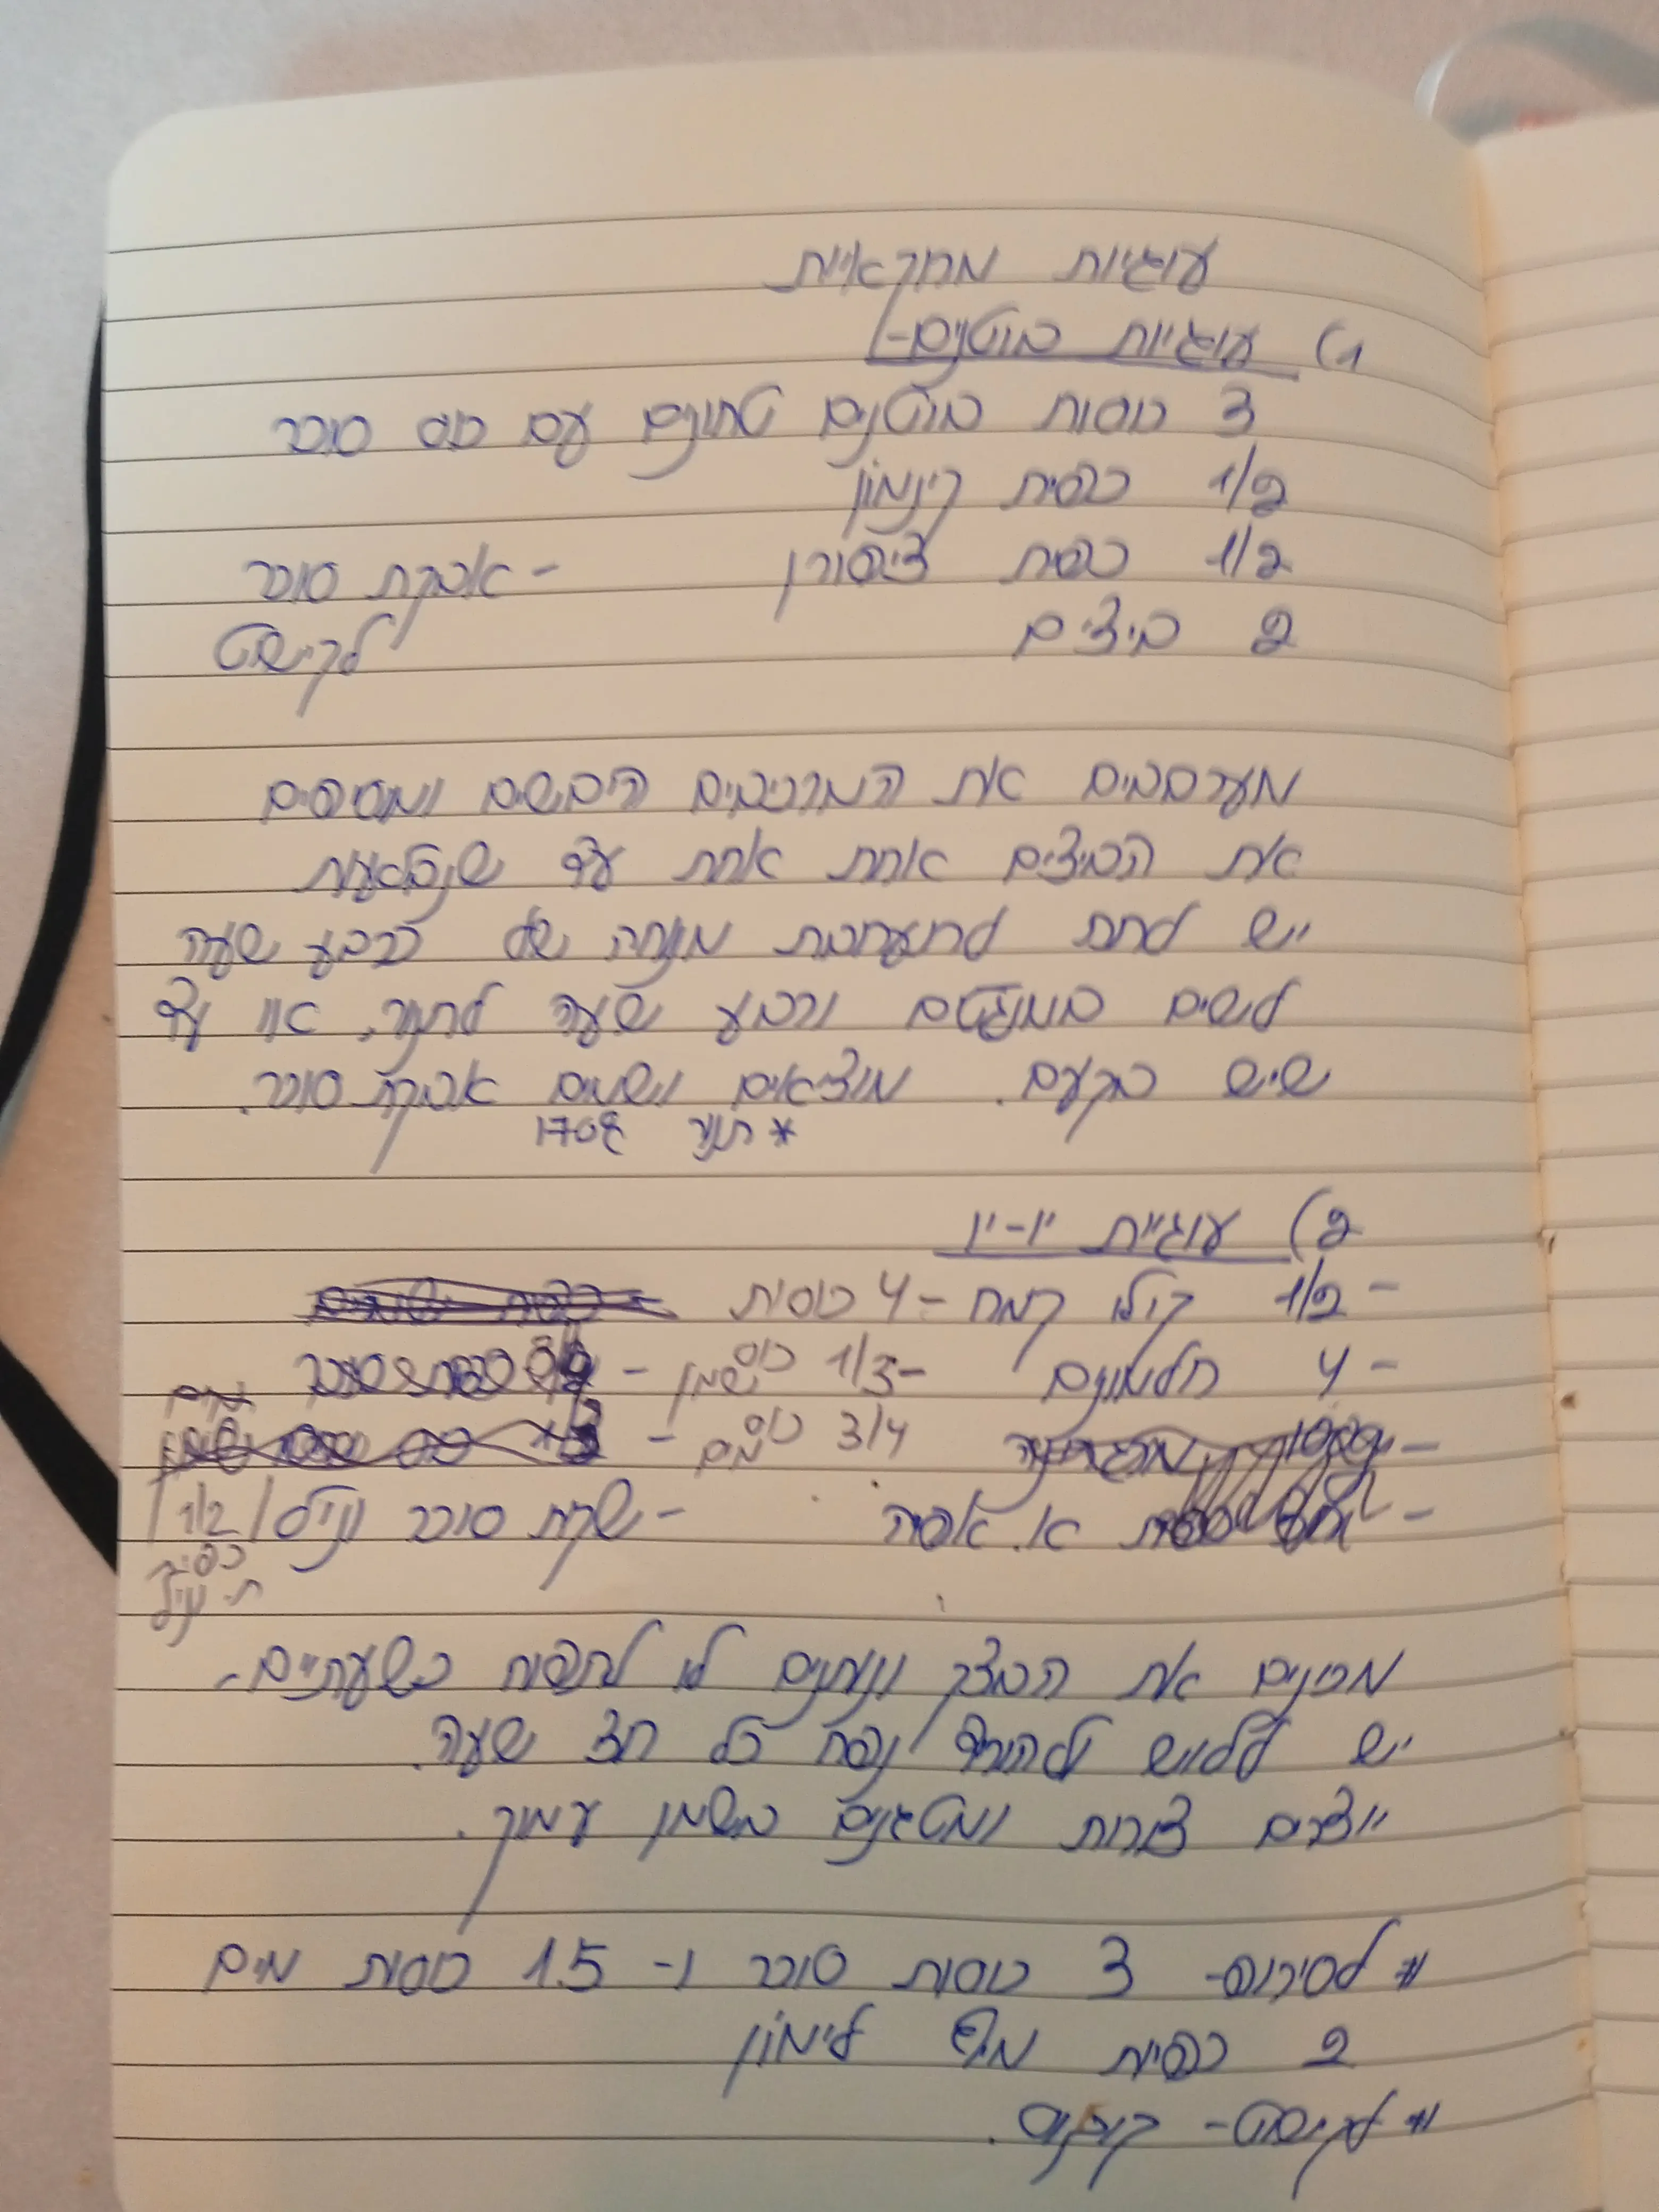 עוגיות מרוקאיות
1) עוגיות בוטנים-
3 כוסות בוטנים טחונים עם כוס סוכר
1/2 כפית קינמון
1/2 כפית ציפורן - אבקת סוכר
2 ביצים לקישוט
מערבבים את המרכיבים היבשים ומוסיפים
את הביצים אחת אחת עד שנבלעות
יש לתת לתערובת מנוחה של כרבע שעה
לשים במנג'טים ורבע שעה לתנור, או עד
שיש בקעים. מוציאים ושמים אבקת סוכר.
* תנור 170°
2) עוגיית יו-יו
- 1/2 קילו קמח - 4 כוסות
- 4 חלמונים - 1/3 כוס שמן -
- מרגרינה 3/4 כוס מים -
- א. אפיה - שקית סוכר וניל / 1/2
כפית
ת. וניל
מכינים את הבצק ונותנים לו לתפוח כשעתיים -
יש ללוש ולהוריד נפח כל חצי שעה.
יוצרים צורות ומטגנים בשמן עמוק.
# לסירופ- 3 כוסות סוכר ו- 1.5 כוסות מים
2 כפיות מיץ לימון
# לקישוט- קוקוס.